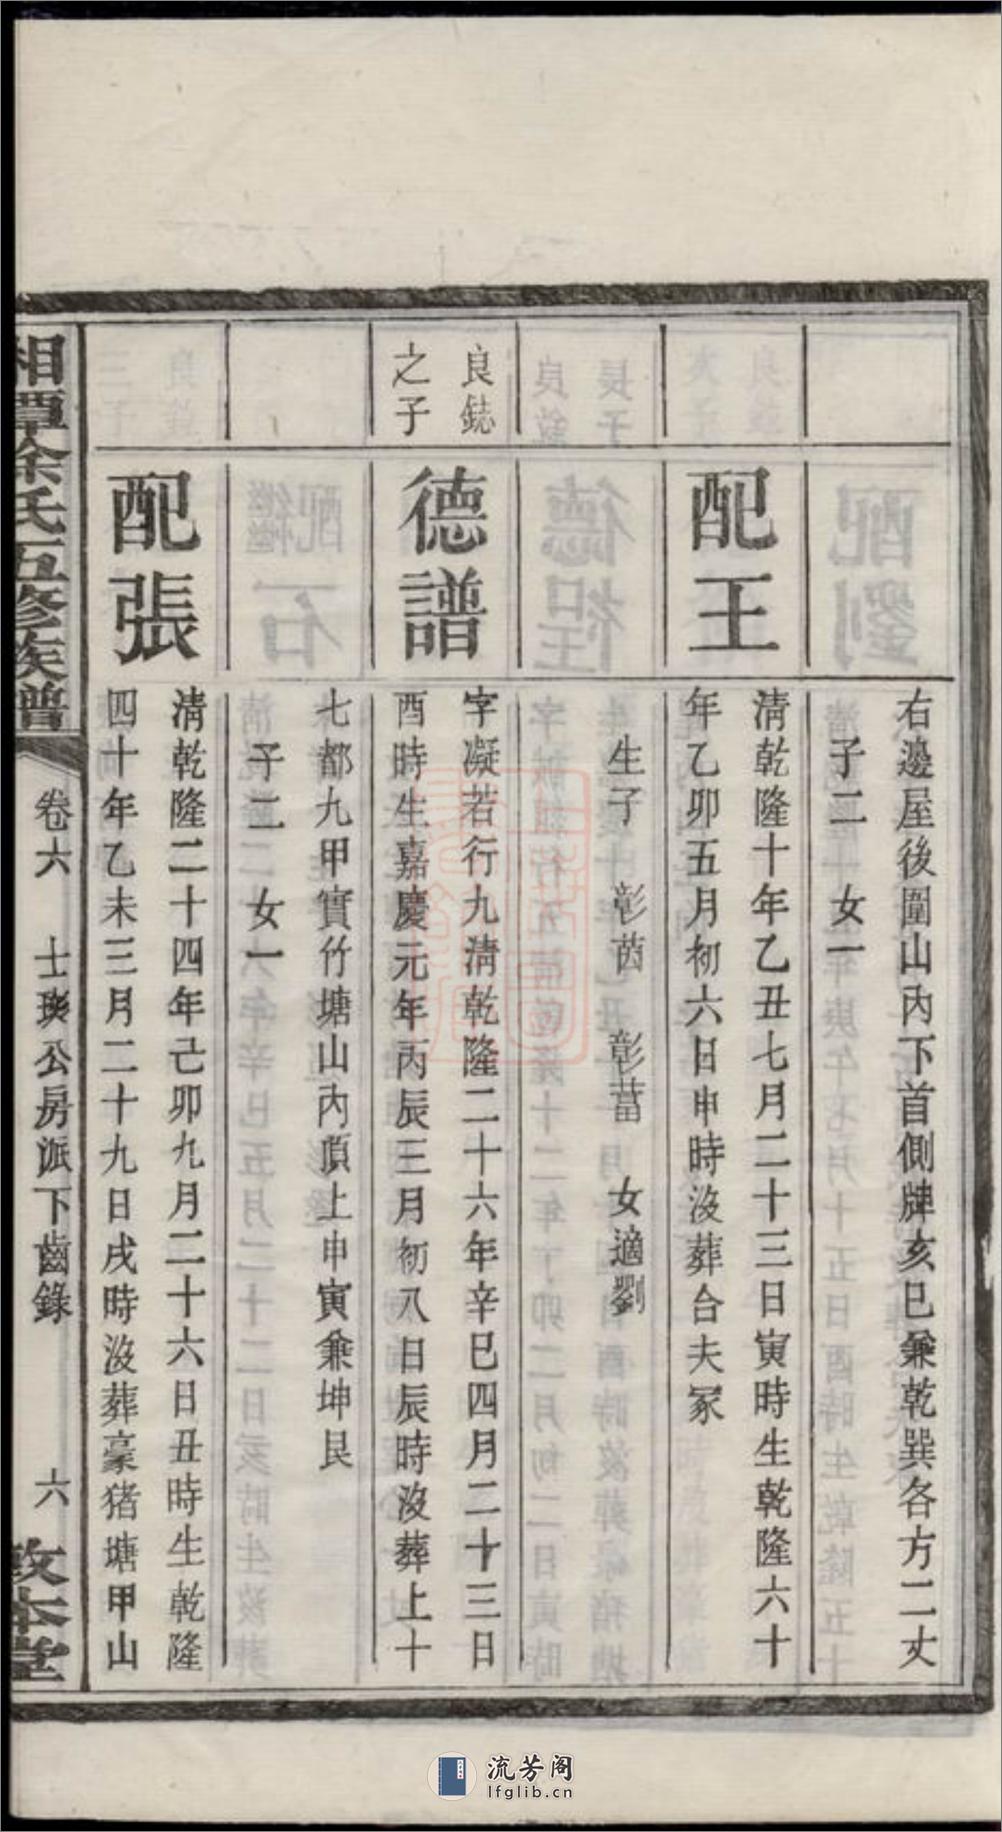 右邊屋後圍山內下首側牌亥巳兼乾巽各方二丈
子二　女一
配王
清乾隆十年乙丑七月二十三日寅時生乾隆六十
年乙卯五月初六日申時沒葬合夫冢
生子　彰茵　彰葍　女適劉
良鋕
之子
德譜
字凝若行九清乾隆二十六年辛巳四月二十三日
酉時生嘉慶元年丙辰三月初八日辰時沒葬上十
七都九甲實竹塘山內頂上申寅兼坤艮
子二　女一
配張
清乾隆二十四年己卯九月二十六日丑時生乾隆
四十年乙未三月二十九日戌時沒葬豪猪塘甲山
湘潭余氏五修族譜
卷六　士璵公房派下齒錄　六
敦本堂
流芳阁
lfglib.cn